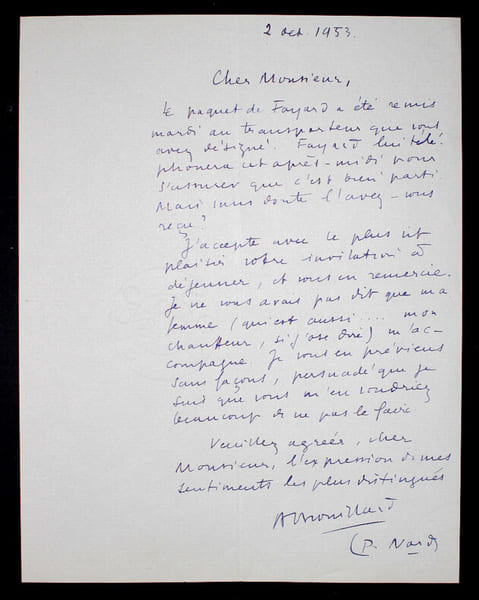 2 oct. 1953.
Cher Monsieur,
Le paquet de Fayard a été remis
mardi au transporteur que vous
avez désigné. Fayard lui télé-
phonera cet après-midi pour
s'assurer que c'est bien parti.
Mais sans doute l'avez-vous
reçu?
J'accepte avec le plus vif
plaisir votre invitation à
déjeuner, et vous en remercie.
Je ne vous avais pas dit que ma
femme (qui est aussi .... mon
chauffeur, si j'ose dire) m'ac-
compagne. Je vous en préviens
sans façons, persuadé que je
suis que vous m'en voudriez
beaucoup de ne pas le faire
Veuillez agréer, cher
Monsieur, l'expression de mes
sentiments les plus distingués
(P. Nord)